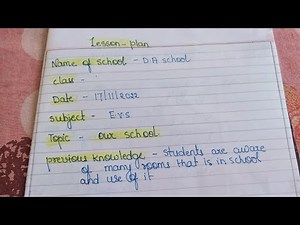 Lesson-plan
Name of School - D.A school
class -
Date - 17/11/2022
subject - E.V.S
Topic - Our school
previous knowledge - students are aware
of many rooms that is in school
and use of it